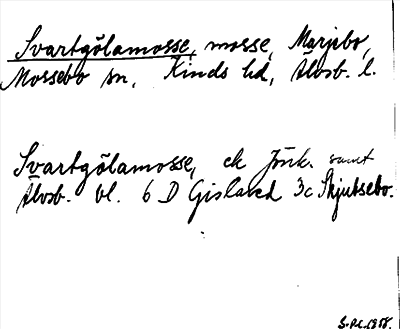 Svartgölamosse, mosse, Marjebo,
Mossebo sn, Kinds hd, Älvsb. l.
Svartgölamosse, ek Jönk. samt
Älvsb. bl. 6 D Gislaved 3c Skjutsebo.